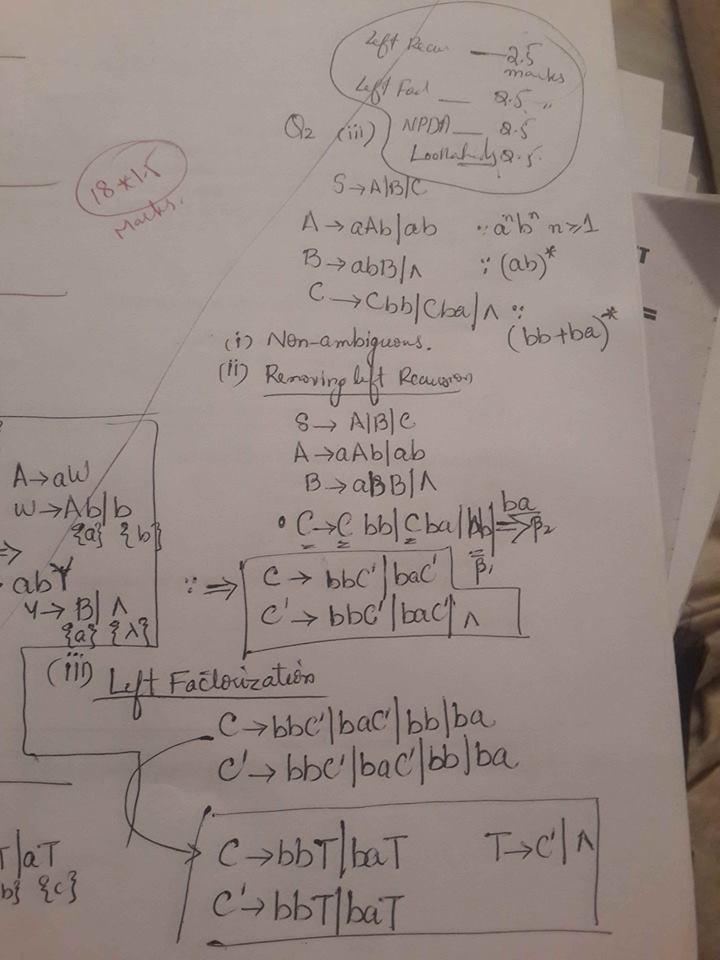 Left Recur — 2.5 marks
Left Fact — 2.5 "
Q2 (iii) NPDA — 2.5
Lookaheads 2.5
18*1.5
Marks.
S → A|B|C
A → aAb|ab ∵ aⁿbⁿ n≥1
B → abB|Λ ∵ (ab)*
C → Cbb|Cba|Λ ∵ (bb+ba)*
(i) Non-ambiguous.
(ii) Removing left Recursion
S → A|B|C
A → aAb|ab
B → aBB|Λ
• C → C bb|C ba|bb| ba ⇒ β2
β1
∵ ⇒ C → bbC'|baC'
C' → bbC'|baC'|Λ
A → aW
W → Ab|b
{a} {b}
⇒
abY
Y → B|Λ
{a} {λ}
(iii) Left Factorization
C → bbC'|baC'|bb|ba
C' → bbC'|baC'|bb|ba
C → bbT|baT T → C'|Λ
C' → bbT|baT
T|aT
b} {c}